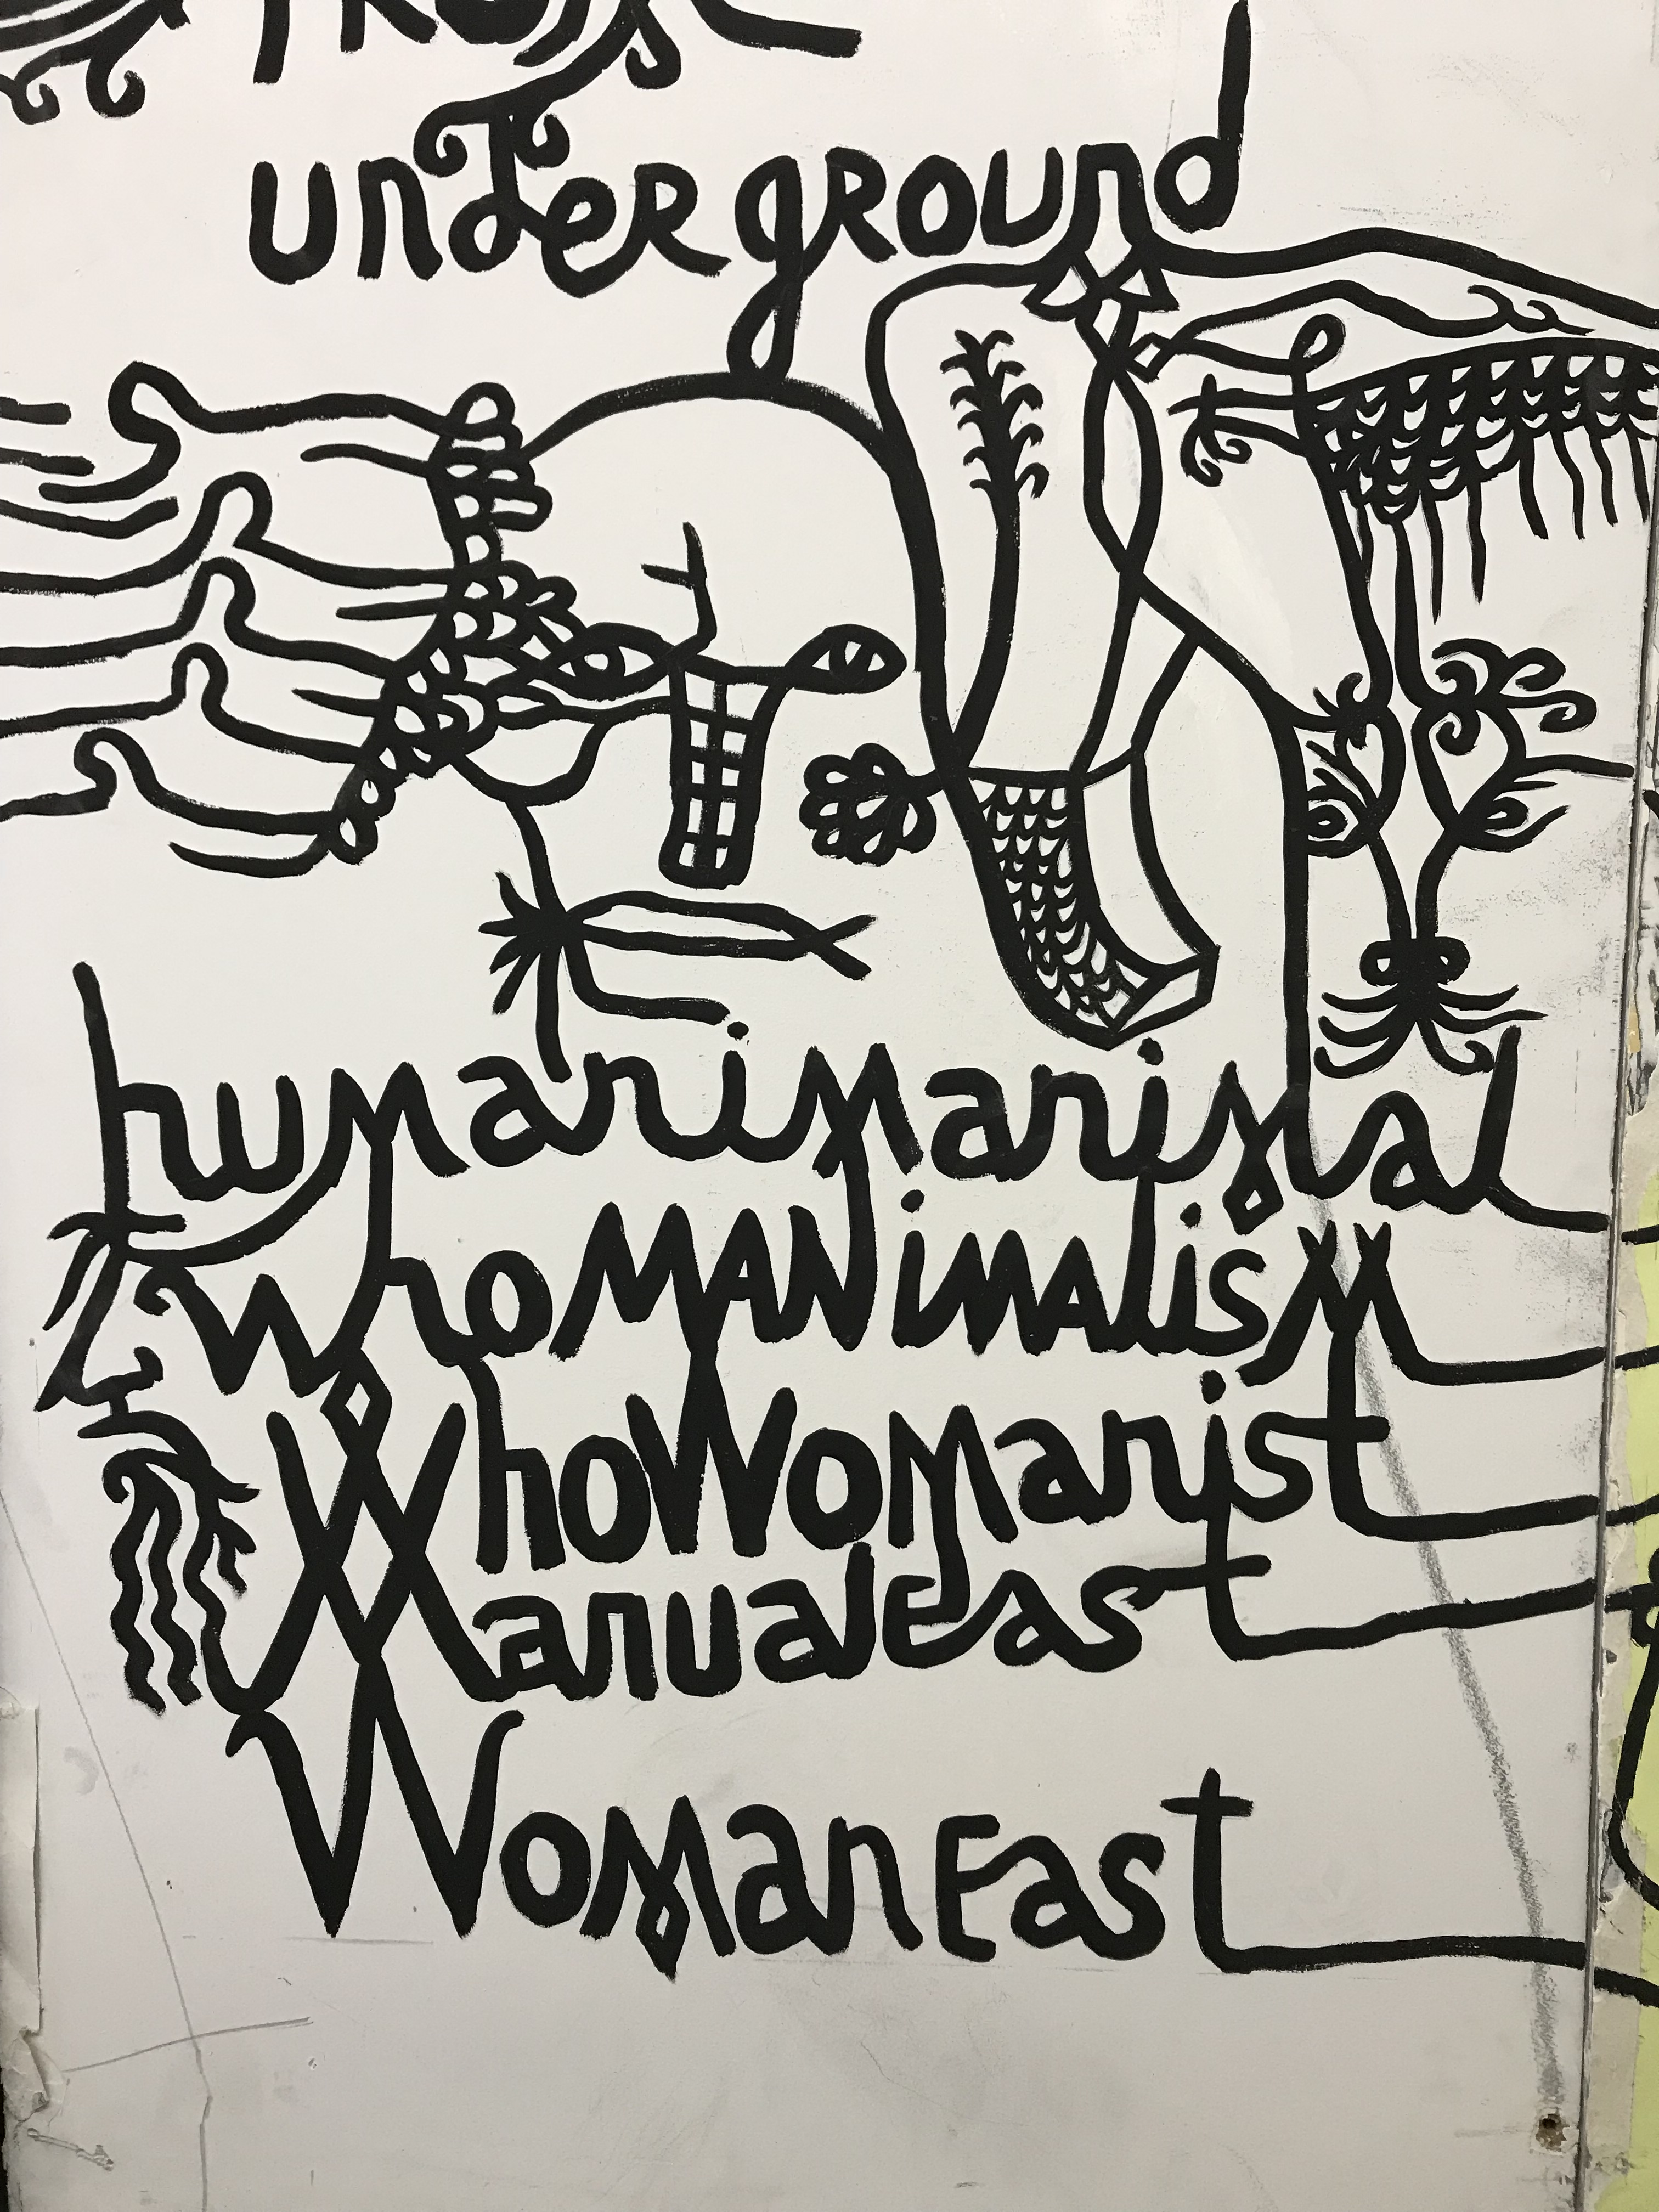 underground
humanimanimal
whoMANimalism
WhoWomanist
Manualeast
WomanEast